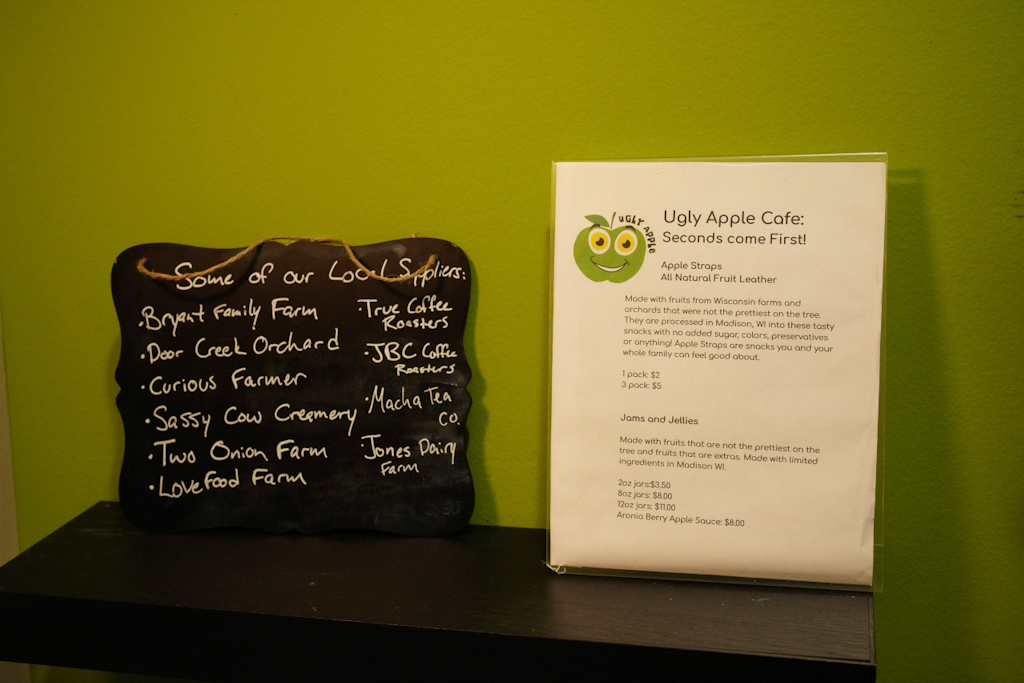 Some of our Local Suppliers:
•Bryant Family Farm
•Door Creek Orchard
•Curious Farmer
•Sassy Cow Creamery
•Two Onion Farm
•Lovefood Farm
•True Coffee
Roasters
•JBC Coffee
Roasters
•Macha Tea
Co.
•Jones Dairy
Farm
UGLY APPLE
Ugly Apple Cafe:
Seconds come First!
Apple Straps
All Natural Fruit Leather
Made with fruits from Wisconsin farms and
orchards that were not the prettiest on the tree.
They are processed in Madison, WI into these tasty
snacks with no added sugar, colors, preservatives
or anything! Apple Straps are snacks you and your
whole family can feel good about.
1 pack: $2
3 pack: $5
Jams and Jellies
Made with fruits that are not the prettiest on the
tree and fruits that are extras. Made with limited
ingredients in Madison WI.
2oz jars:$3.50
8oz jars: $8.00
12oz jars: $11.00
Aronia Berry Apple Sauce: $8.00